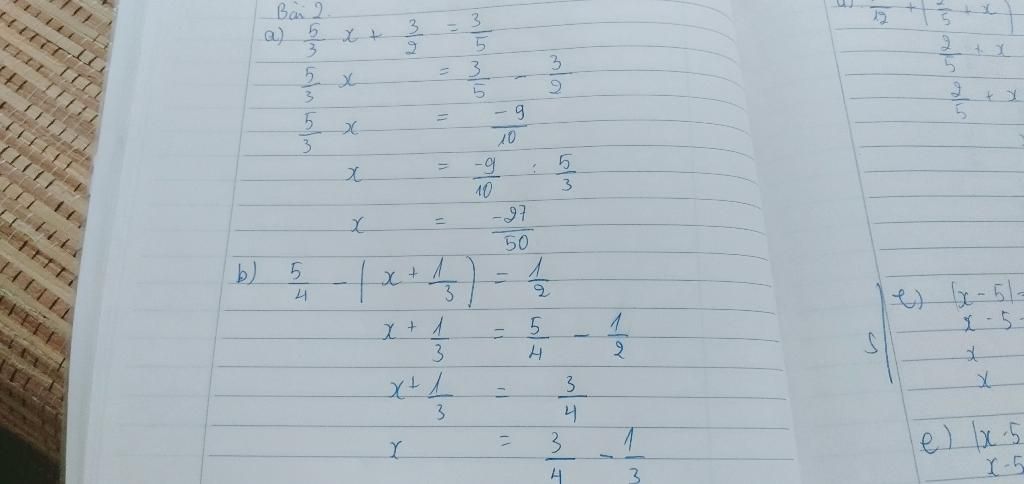 Bài 2.
a) 5/3 x + 3/2 = 3/5
5/3 x = 3/5 - 3/2
5/3 x = -9/10
x = -9/10 : 5/3
x = -27/50
b) 5/4 - (x + 1/3) = 1/2
x + 1/3 = 5/4 - 1/2
x + 1/3 = 3/4
x = 3/4 - 1/3
2/5 + x
2/5 + x
S
e) |x - 5| =
x - 5
x
x
e) |x - 5
x - 5